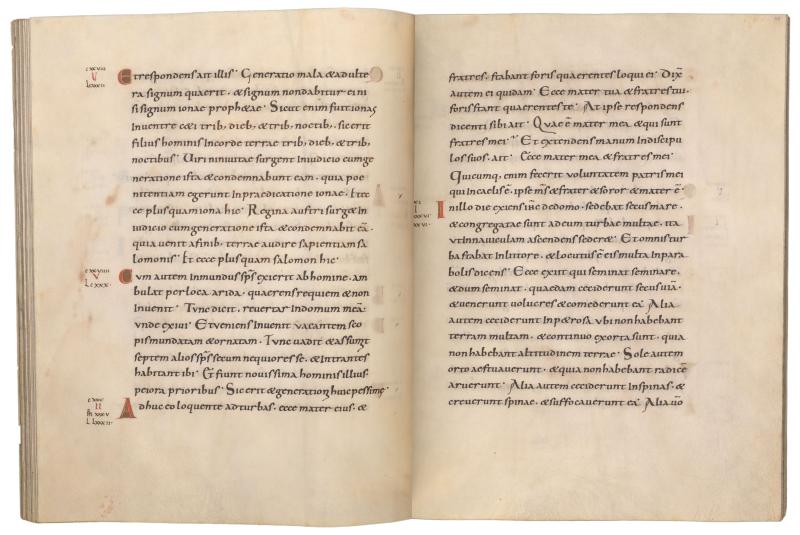 cxxviii
V
Lxxxii
Et respondens ait illis· Generatio mala & adulte
ra signum quaerit· & signum non dabitur ei ni
si signum ionae prophetae· Sicut enim fuit ionas
in ventre coeti trib; dieb; & trib; noctib; sic erit
filius hominis in corde terrae trib; dieb; & trib;
noctibus· Uiri niniuitae surgent in iudicio cum ge
neratione ista & condemnabunt eam· quia poe
nitentiam egerunt in praedicatione ionae· Et ec
ce plus quam iona hic· Regina austri surg& in
iudicio cum generatione ista & condemnabit eā·
quia uenit a finib; terrae audire sapientiam sa
lomonis· Et ecce plus quam salomon hic·
cxxviiii
V
Lxxx·
Cum autem inmundus sp̄s exierit ab homine· am
bulat per loca arida· quaerens requiem & non
inuenit· Tunc dicit· reuertar in domum meā
unde exiui· Et ueniens inuenit uacantem sco
pis mundatam & ornatam· Tunc uadit & assumit
septem alios sp̄s secum nequiores se· & intrantes
habitant ibi· Et fiunt nouissima hominis illius·
peiora prioribus· Sic erit & generationi huic pessime·
cxxx
II
M xxxv
L Lxxxii·
Adhuc eo loquente ad turbas· ecce mater eius· &
fratres· stabant foris quaerentes loqui ei· Dix̄
autem ei quidam· Ecce mater tua & fratres tui·
foris stant quaerentes te· At ipse respondens
dicenti sibi ait· Quae ē mater mea & qui sunt
fratres mei· Et extendens manum in discipu
los suos· ait· Ecce mater mea & fratres mei·
Quicumq; enim fecerit voluntatem patris mei
qui in caelis ē· ipse m̄s & frater & soror & mater ē·
In illo die exiens iħs de domo· sedebat secus mare·
& congregatae sunt ad eum turbae multae· ita
ut in nauiculam ascendensseder&· Et omnis tur
ba stabat in litore· & locutus ē eis multa in para
bolis dicens· Ecce exiit qui seminat seminare·
& dum seminat· quaedam ceciderunt secus uiā·
& uenerunt uolucres & comederunt ea· Alia
autem ceciderunt in petrosa ubi non habebant
terram multam· & continuo exorta sunt· quia
non habebant altitudinem terrae· Sole autem
orto aestuauerunt· & quia non habebant radicē
aruerunt· Alia autem ceciderunt in spinas· &
creuerunt spinae· & suffocauerunt ea· Alia uō